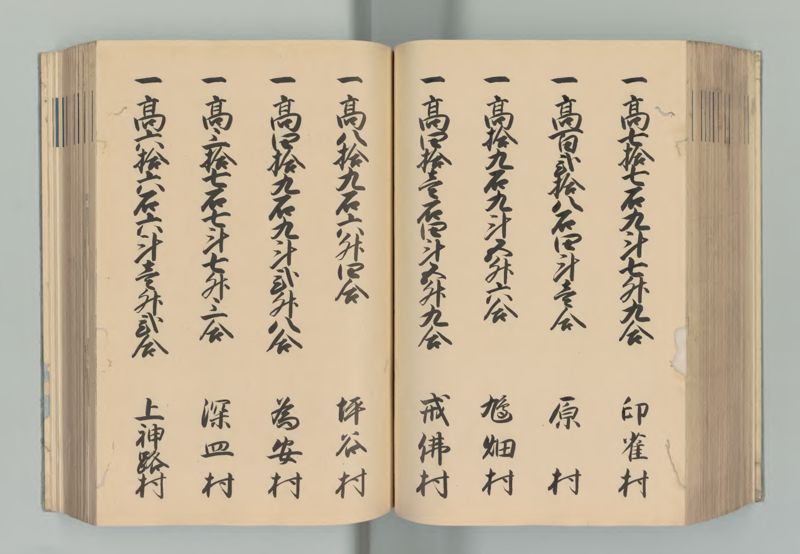 一高七拾七石九斗七升九合 印雀村
一高百弐拾八石四斗壱合 原村
一高拾九石九斗五升六合 鳩畑村
一高四拾壱石四斗五升九合 戒佛村
一高八拾九石六升四合 坪谷村
一高四拾九石九斗弐升八合 為安村
一高三拾七石七斗七升三合 深皿村
一高六拾六石六斗壱升弐合 上神路村